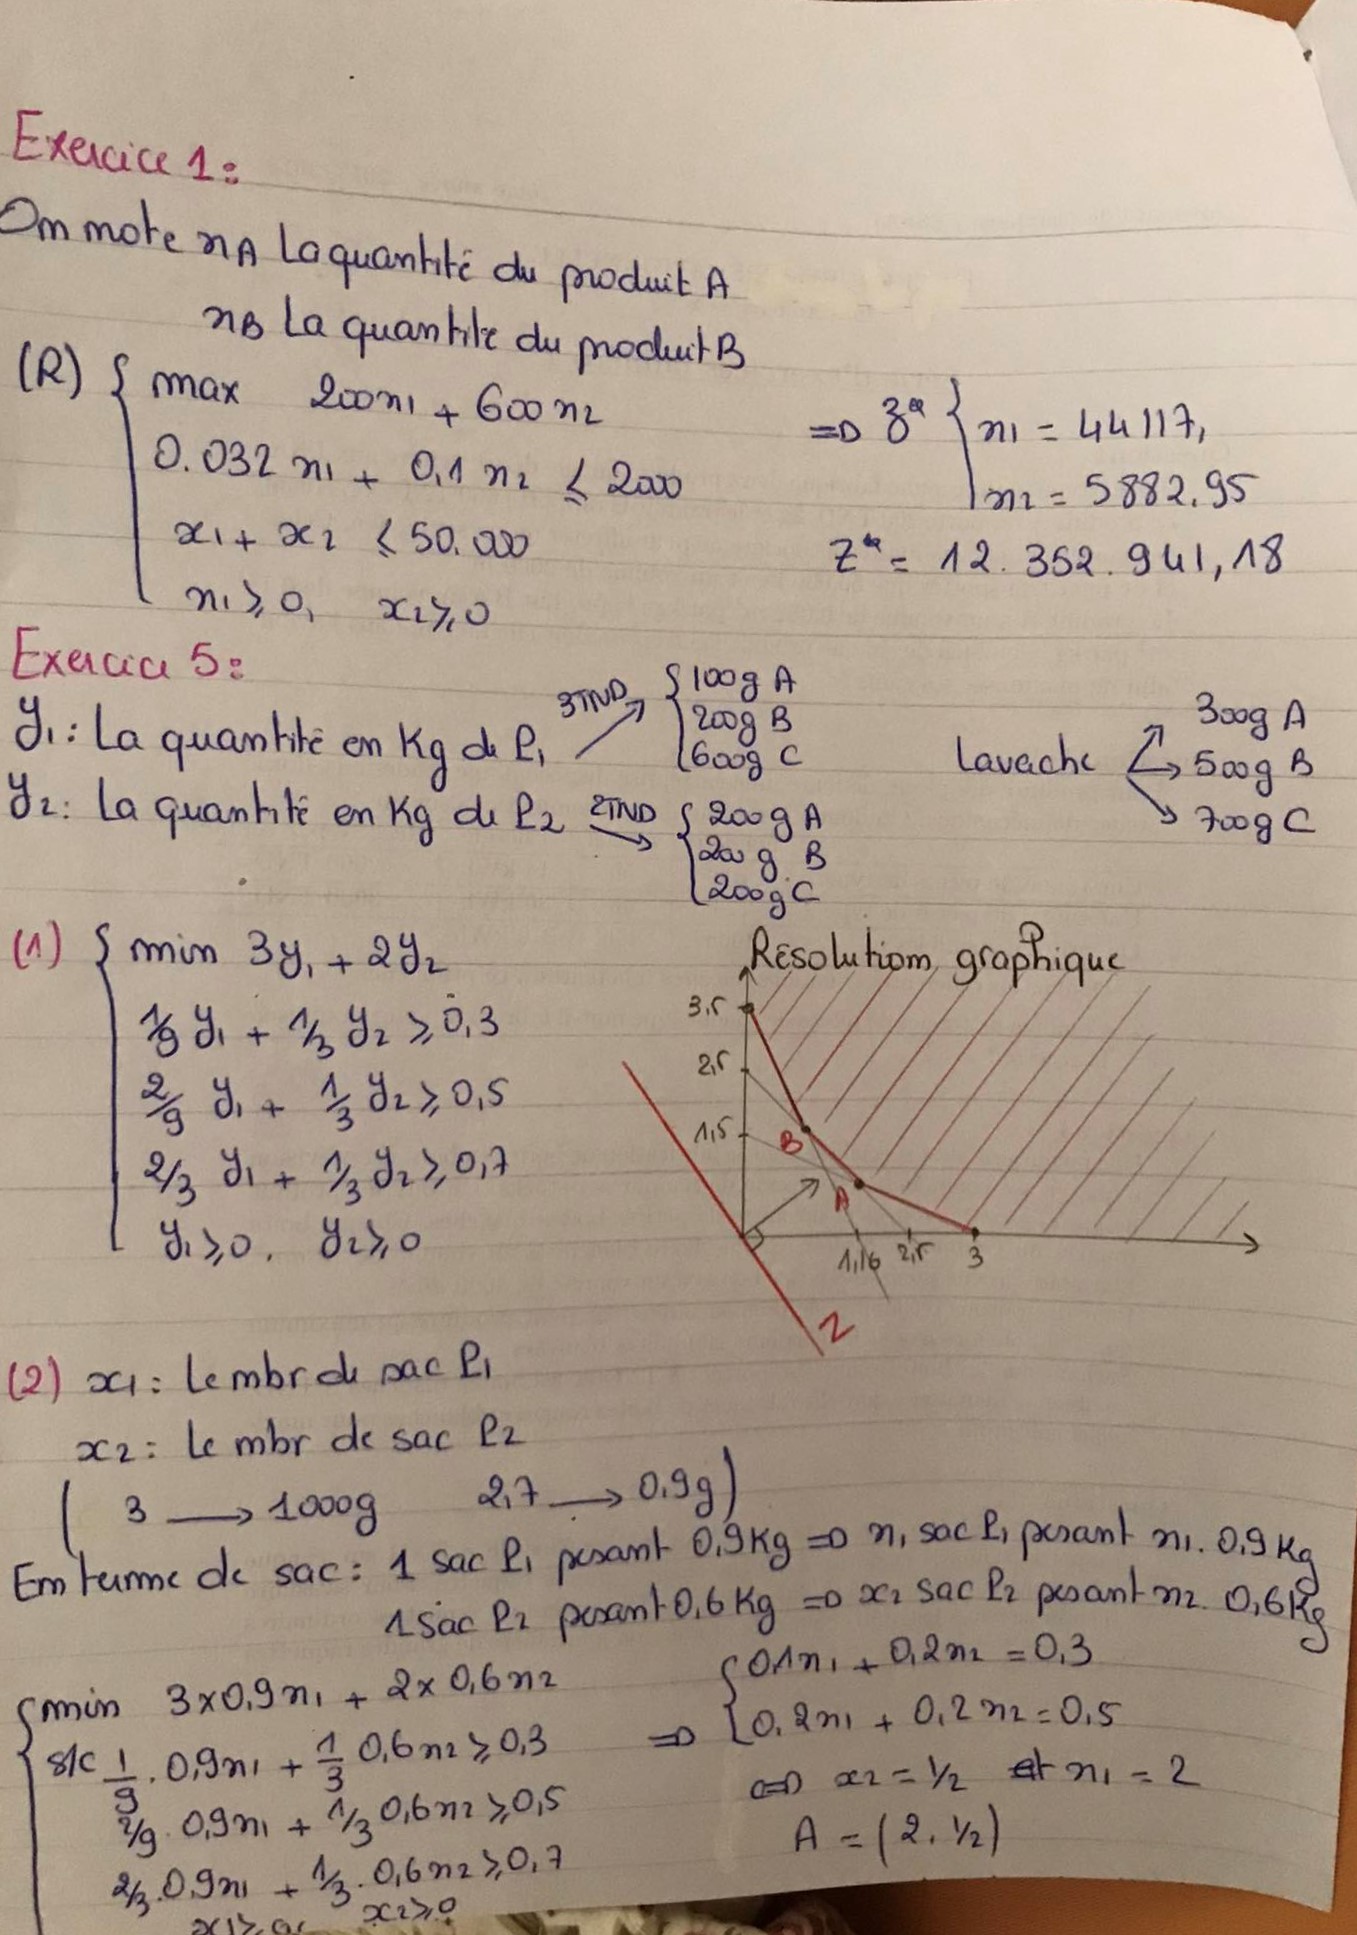 Exercice 1:
On note nA La quantité du produit A
nB La quantité du produit B
(R) { max 200n1 + 600n2
0.032 n1 + 0,1 n2 ≤ 2000
x1 + x2 ≤ 50.000
n1 ≥ 0, x2 ≥ 0
=> z* { n1 = 44117,
n2 = 5882.95
Z* = 12.352.941,18
Exercice 5:
y1: La quantité en Kg de P1 3TND { 100g A
200g B
600g C
y2: La quantité en Kg de P2 2TND { 200g A
200g B
200g C
La vache 300g A
500g B
700g C
(1) { min 3y1 + 2y2
1/9 y1 + 1/3 y2 ≥ 0,3
2/9 y1 + 1/3 y2 ≥ 0,5
2/3 y1 + 1/3 y2 ≥ 0,7
y1 ≥ 0, y2 ≥ 0
Résolution graphique
3,5
2,5
1,5
B
A
1,16 2,5 3
Z
(2) x1: Le nbr de sac P1
x2: Le nbr de sac P2
( 3 → 1000g 2,7 → 0,9g )
En terme de sac: 1 sac P1 pesant 0,9Kg => n1 sac P1 pesant n1. 0,9Kg
1 sac P2 pesant 0,6Kg => x2 sac P2 pesant n2. 0,6Kg
{ min 3x0,9n1 + 2x0,6n2
s/c 1/9 . 0,9n1 + 1/3 0,6n2 ≥ 0,3
2/9 . 0,9n1 + 1/3 0,6n2 ≥ 0,5
2/3 . 0,9n1 + 1/3 . 0,6n2 ≥ 0,7
x1 ≥ 0, x2 ≥ 0
=> { 0,1n1 + 0,2n2 = 0,3
0,2n1 + 0,2n2 = 0,5
<=> x2 = 1/2 et n1 = 2
A = (2, 1/2)